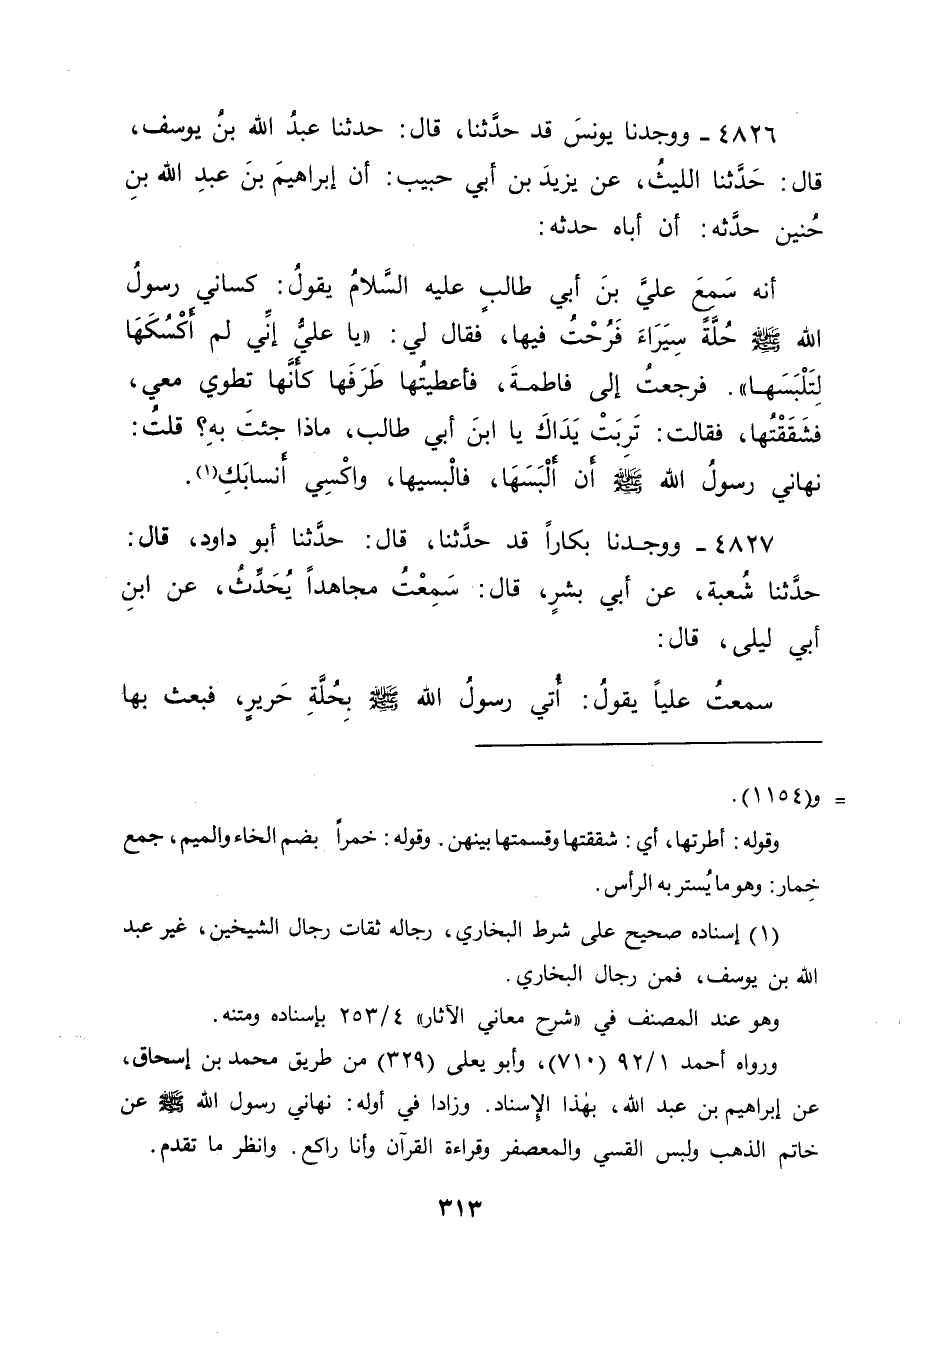 ٤٨٢٦ ـ ووجدنا يونسَ قد حدَّثنا، قال: حدثنا عبدُ الله بنُ يوسف،
قال: حَدَّثنا الليثُ، عن يزيدَ بن أبي حبيب: أن إبراهيمَ بنَ عبدِ الله بنِ
حُنين حدَّثه: أن أباه حدثه:
أنه سَمِعَ عليَّ بنَ أبي طالبٍ عليه السَّلامُ يقولُ: كساني رسولُ
الله ﷺ حُلَّةً سِيَرَاءَ فَرُحْتُ فيها، فقال لي: «يا عليُّ إنِّي لم أَكْسُكَهَا
لِتَلْبَسَهـا». فرجعتُ إلى فاطمـةَ، فأعطيتُها طَرَفَها كأنَّها تطوي معي،
فشَقَقْتُها، فقالت: تَرِبَتْ يَدَاكَ يا ابنَ أبي طالب، ماذا جئتَ بهِ؟ قلتُ:
نهاني رسولُ الله ﷺ أن أَلْبَسَهَا، فالْبسيها، واكْسِي أنسابَكِ(١).
٤٨٢٧ ـ ووجـدنا بكاراً قد حدَّثنا، قال: حدَّثنا أبو داود، قال:
حدَّثنا شُعبة، عن أبي بشرٍ، قال: سَمِعْتُ مجاهداً يُحَدِّثُ، عن ابنِ
أبي ليلى، قال:
سمعتُ علياً يقولُ: أُتي رسولُ الله ﷺ بِحُلَّةِ حَريرٍ، فبعث بها
= و(١١٥٤).
وقوله: أطرتها، أي: شققتها وقسمتها بينهن. وقوله: خمراً بضم الخاء والميم، جمع
خِمار: وهو ما يُستر به الرأس.
(١) إسناده صحيح على شرط البخاري، رجاله ثقات رجال الشيخين، غير عبد
الله بن يوسف، فمن رجال البخاري.
وهو عند المصنف في «شرح معاني الآثار» ٢٥٣/٤ بإسناده ومتنه.
ورواه أحمد ٩٢/١ (٧١٠)، وأبو يعلى (٣٢٩) من طريق محمد بن إسحاق،
عن إبراهيم بن عبد الله، بهٰذا الإسناد. وزادا في أوله: نهاني رسول الله ﷺ عن
خاتم الذهب ولبس القسي والمعصفر وقراءة القرآن وأنا راكع. وانظر ما تقدم.
٣١٣